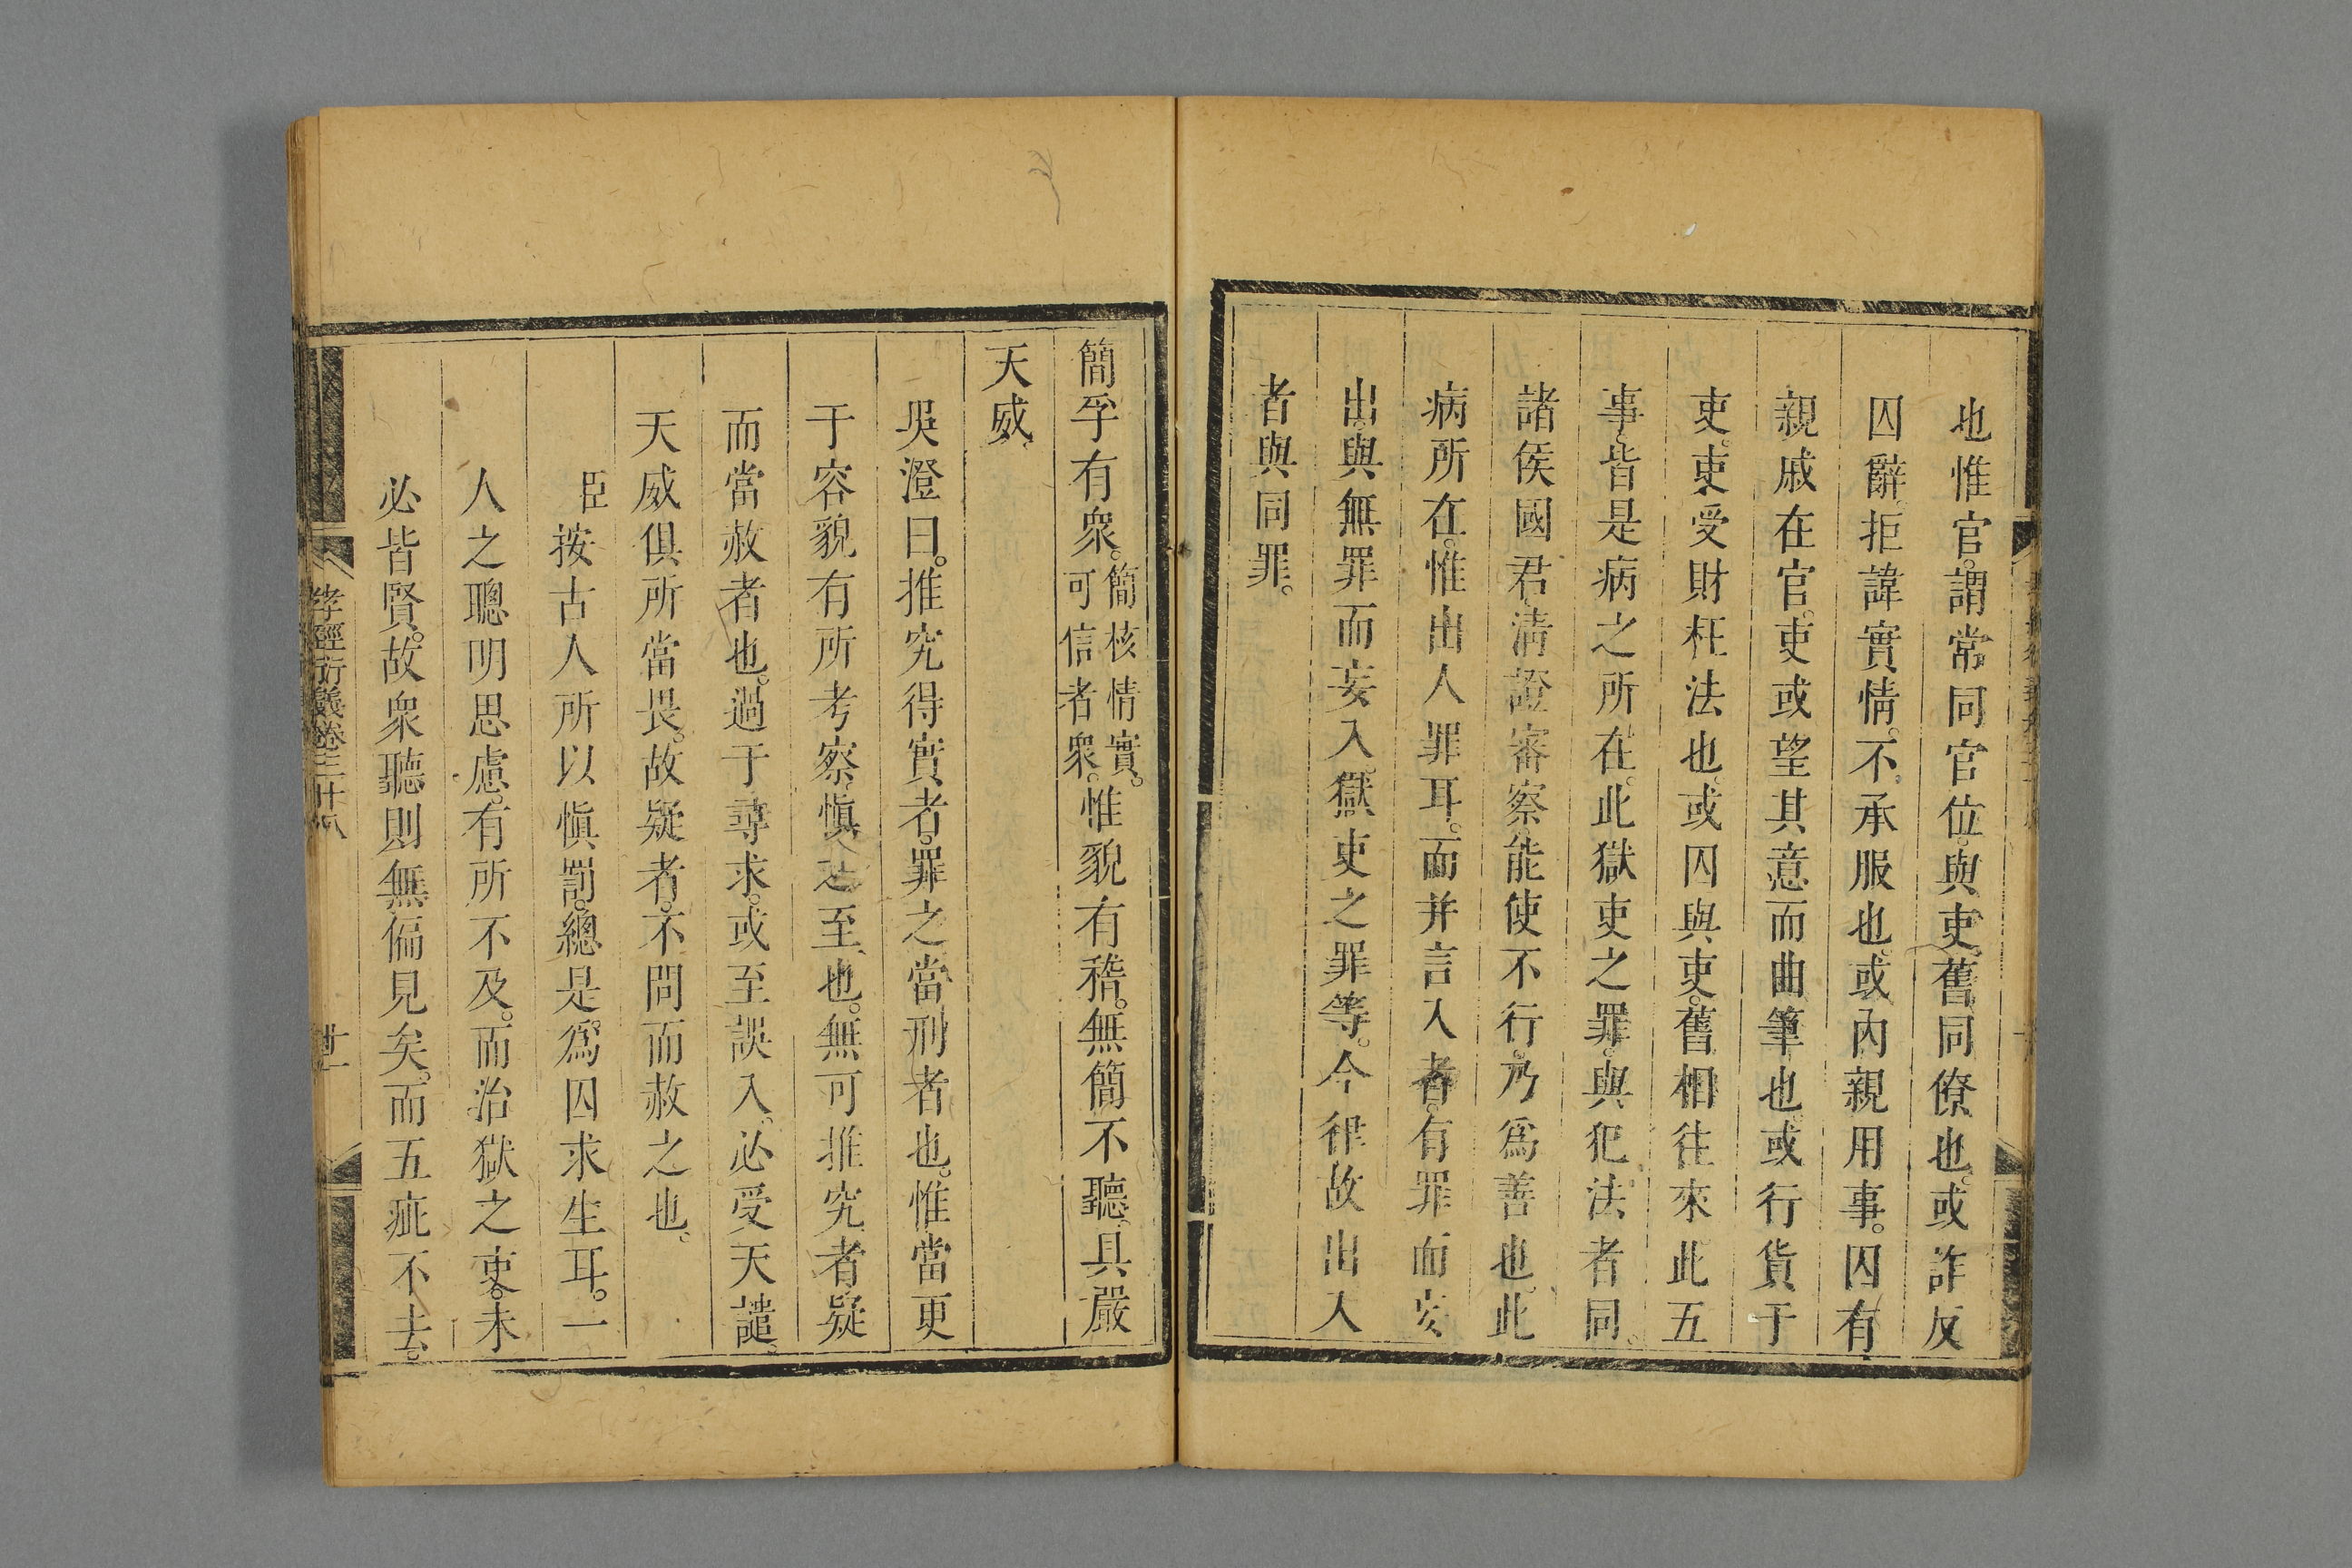 也惟官。謂常同官位。與吏舊同僚也。或詐反
囚辭。拒諱實情。不承服也。或內親用事。囚有
親戚在官。吏或望其意而曲筆也。或行貨于
吏。吏受財枉法也。或囚與吏。舊相往來此五
事。皆是病之所在。此獄吏之罪。與犯法者同。
諸侯國君。清證審察。能使不行。乃為善也。此
病所在。惟出人罪耳。而并言入者。有罪而妄
出。與無罪而妄入。獄吏之罪等。今律故出入
者與同罪。
簡孚有衆。簡核情實。可信者衆。惟貌有稽。無簡不聽。具嚴
天威。
吳澄曰。推究得實者。罪之當刑者也。惟當更
于容貌有所考察。慎之至也。無可推究者疑
而當赦者也。過于尋求。或至誤入。必受天譴。
天威俱所當畏。故疑者。不問而赦之也。
臣按古人所以愼罰。總是為囚求生耳。一
人之聰明思慮。有所不及。而治獄之吏。未
必皆賢。故衆聽則無偏見矣。而五疵不去。
孝經衍義卷三十八